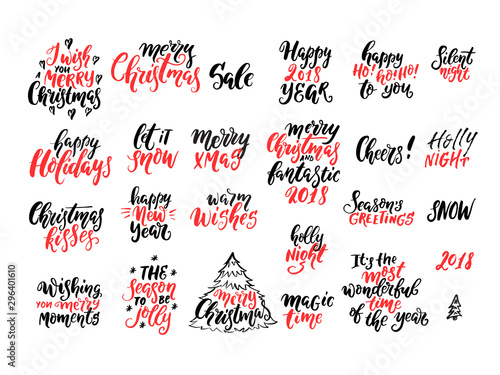 I wish
you
A MERRY
Christmas
merry
Christmas
Sale
Happy
2018
YEAR
happy
HO! HO! HO!
to you
Silent
night
happy
Holidays
let it
SNOW
merry
XMAS
merry
Christmas
AND
fantastic
2018
Cheers!
Holly
NIGHT
Christmas
kisses
happy
New
year
warm
Wishes
Season's
GREETINGS
SNOW
holly
Night
Wishing
you merry
Moments
THE
SEASON
TO BE
Jolly
merry
Christmas
magic
time
It's the
most
wonderful
time
of the year
2018
Adobe Stock | #296401610
Adobe Stock